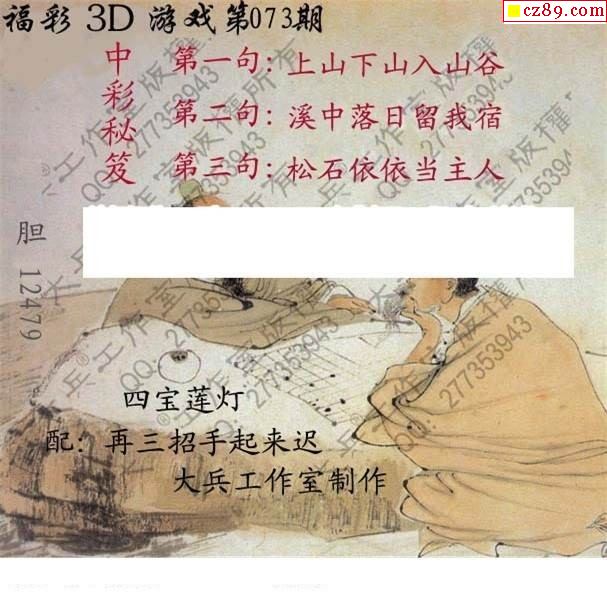 福彩 3D 游戏第073期
cz89.com
中彩秘笈
第一句：上山下山入山谷
第二句：溪中落日留我宿
第三句：松石依依当主人
胆 12479
四宝莲灯
配：再三招手起来迟
大兵工作室制作
大兵®工作室版权所有
QQ：277353943